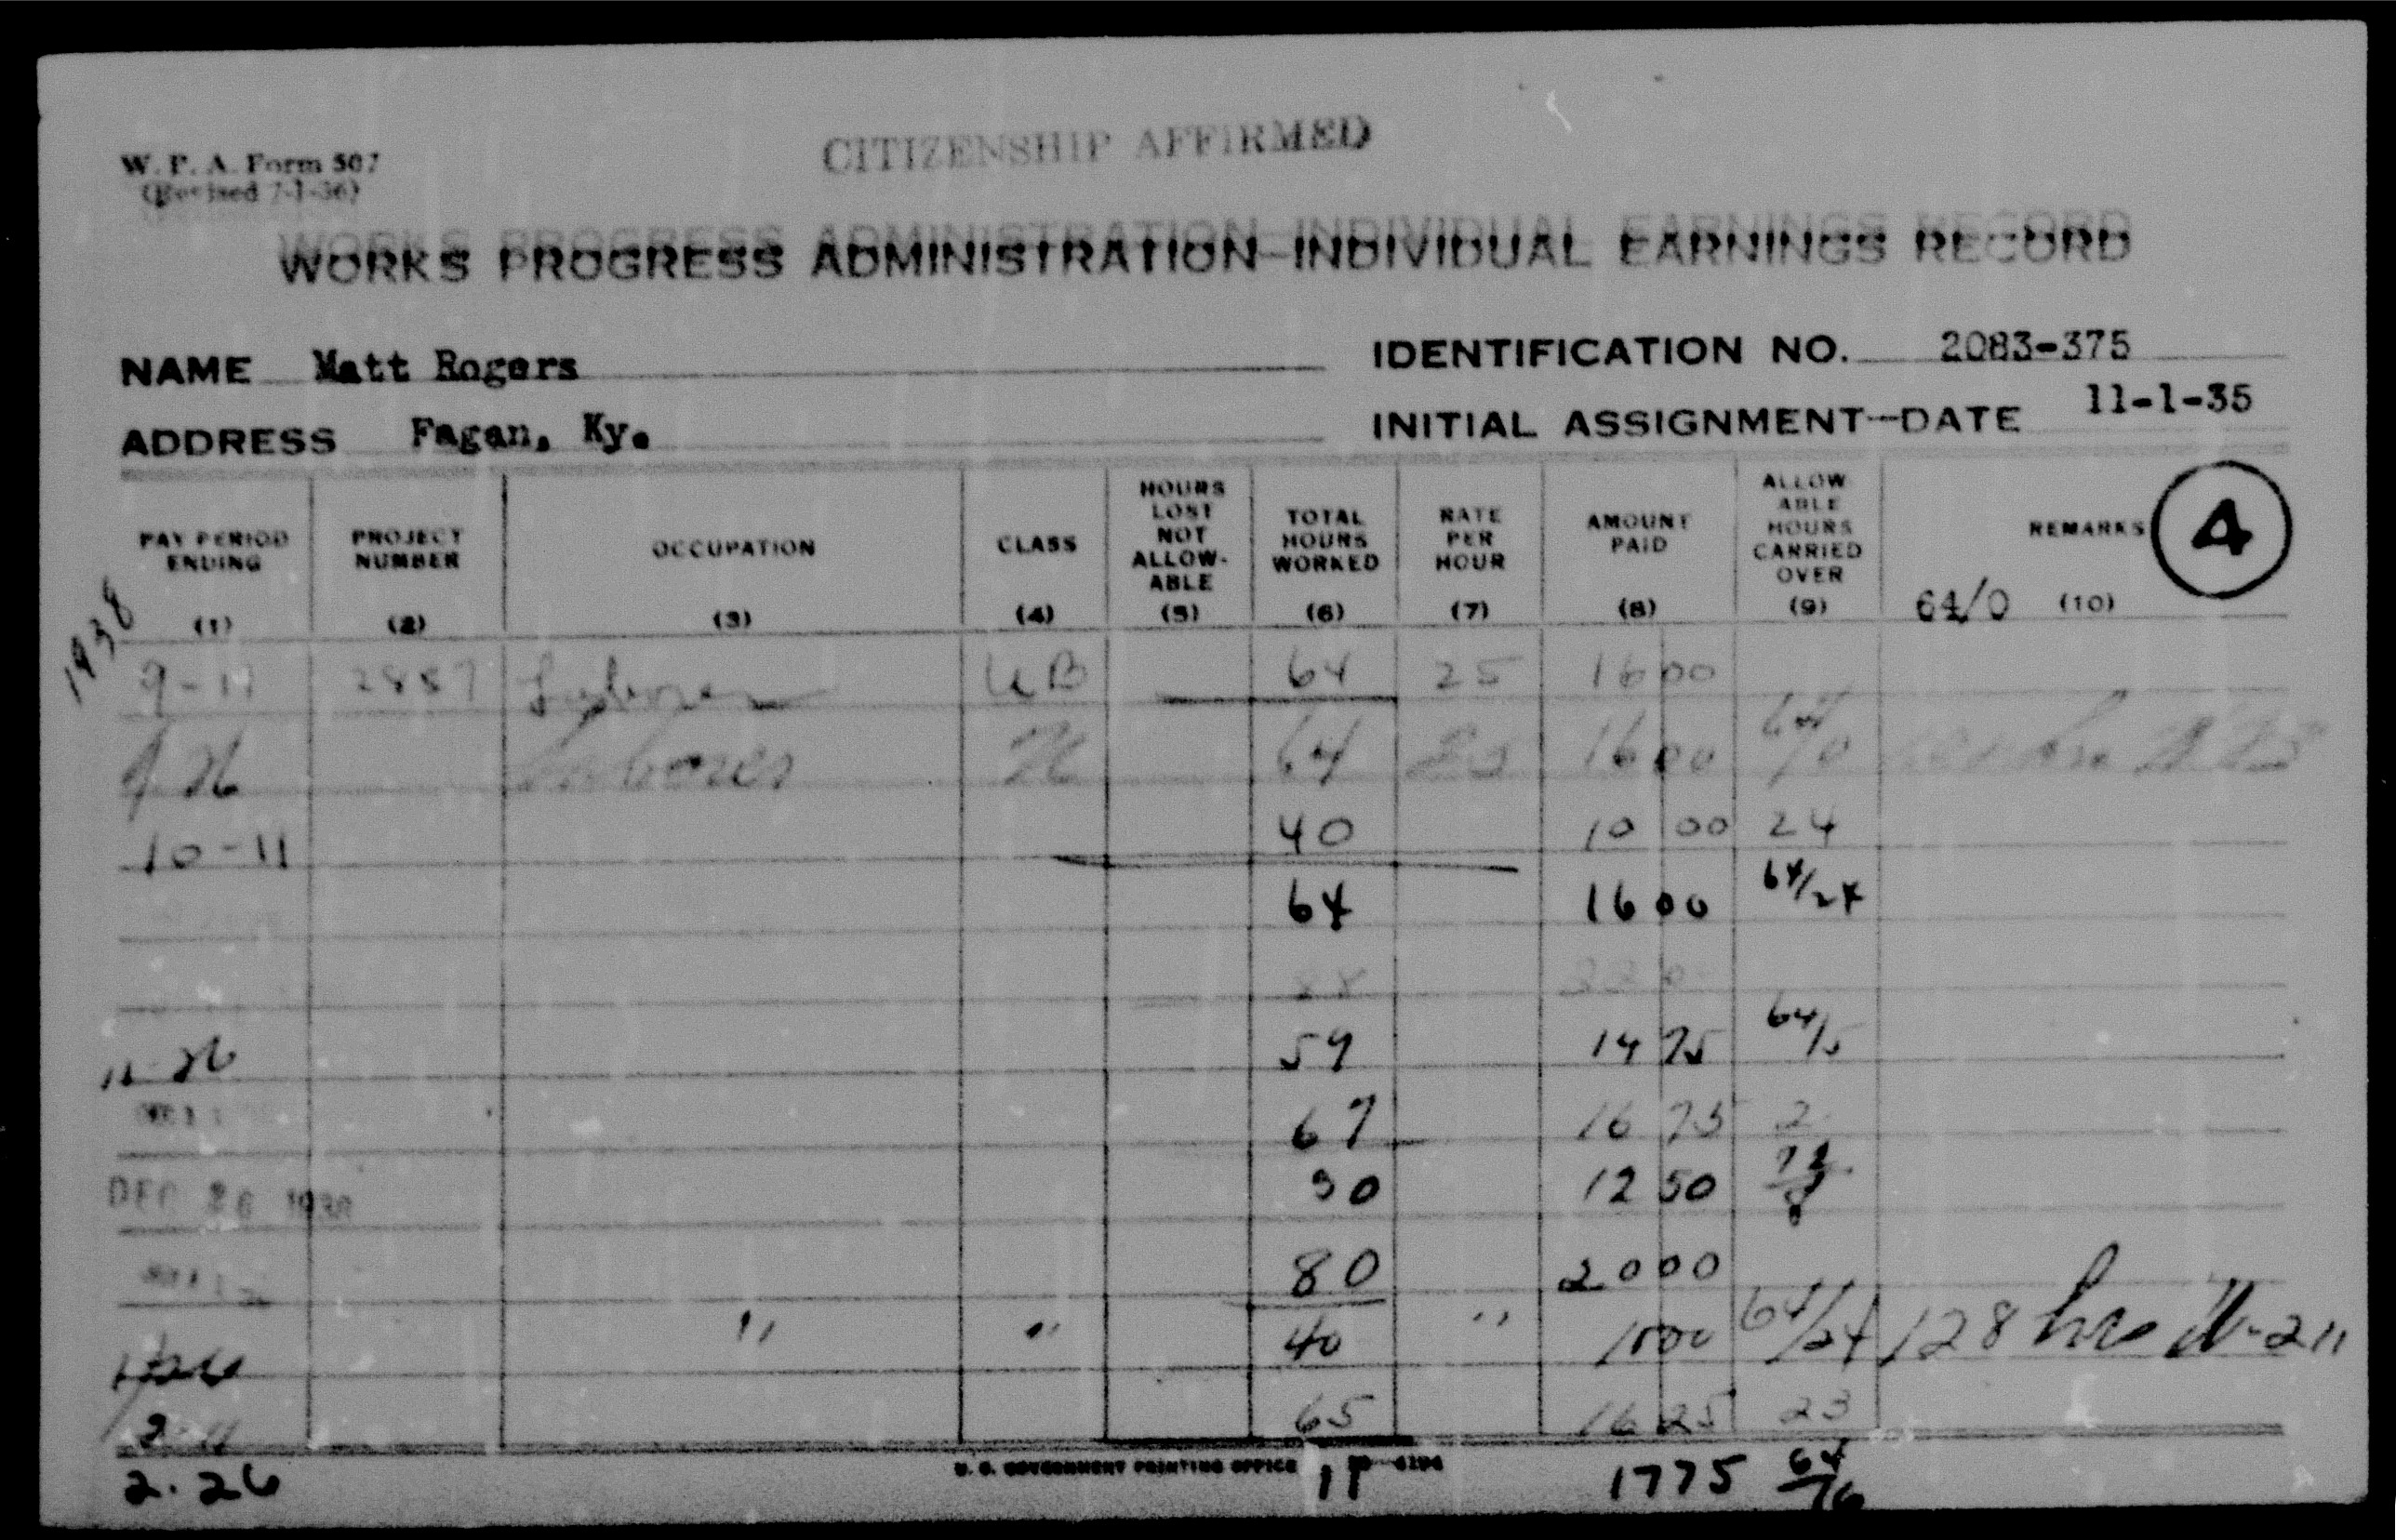 CITIZENSHIP AFFIRMED
W. P. A. Form 507
(Revised 7-1-36)
WORKS PROGRESS ADMINISTRATION—INDIVIDUAL EARNINGS RECORD
NAME Matt Rogers IDENTIFICATION NO. 2083-375
ADDRESS Fagan, Ky. INITIAL ASSIGNMENT—DATE 11-1-35
PAY PERIOD ENDING (1) PROJECT NUMBER (2) OCCUPATION (3) CLASS (4) HOURS LOST NOT ALLOW-ABLE (5) TOTAL HOURS WORKED (6) RATE PER HOUR (7) AMOUNT PAID (8) ALLOW-ABLE HOURS CARRIED OVER (9) REMARKS (10) 4
64/0
1938
9-11 2887 Laborer UB 64 25 16 00
9 26 Laborer 64 16 00 64/0
10-11 40 10 00 24
64 16 00 64/24
11-26 59 14 75 64/5
67 16 75 2
DEC 26 1938 50 12 50
80 20 00
1/26 " " 40 " 10 00 64/24 128 hrs
2-11 65 16 25 23
U. S. GOVERNMENT PRINTING OFFICE
2.26 17 75 64